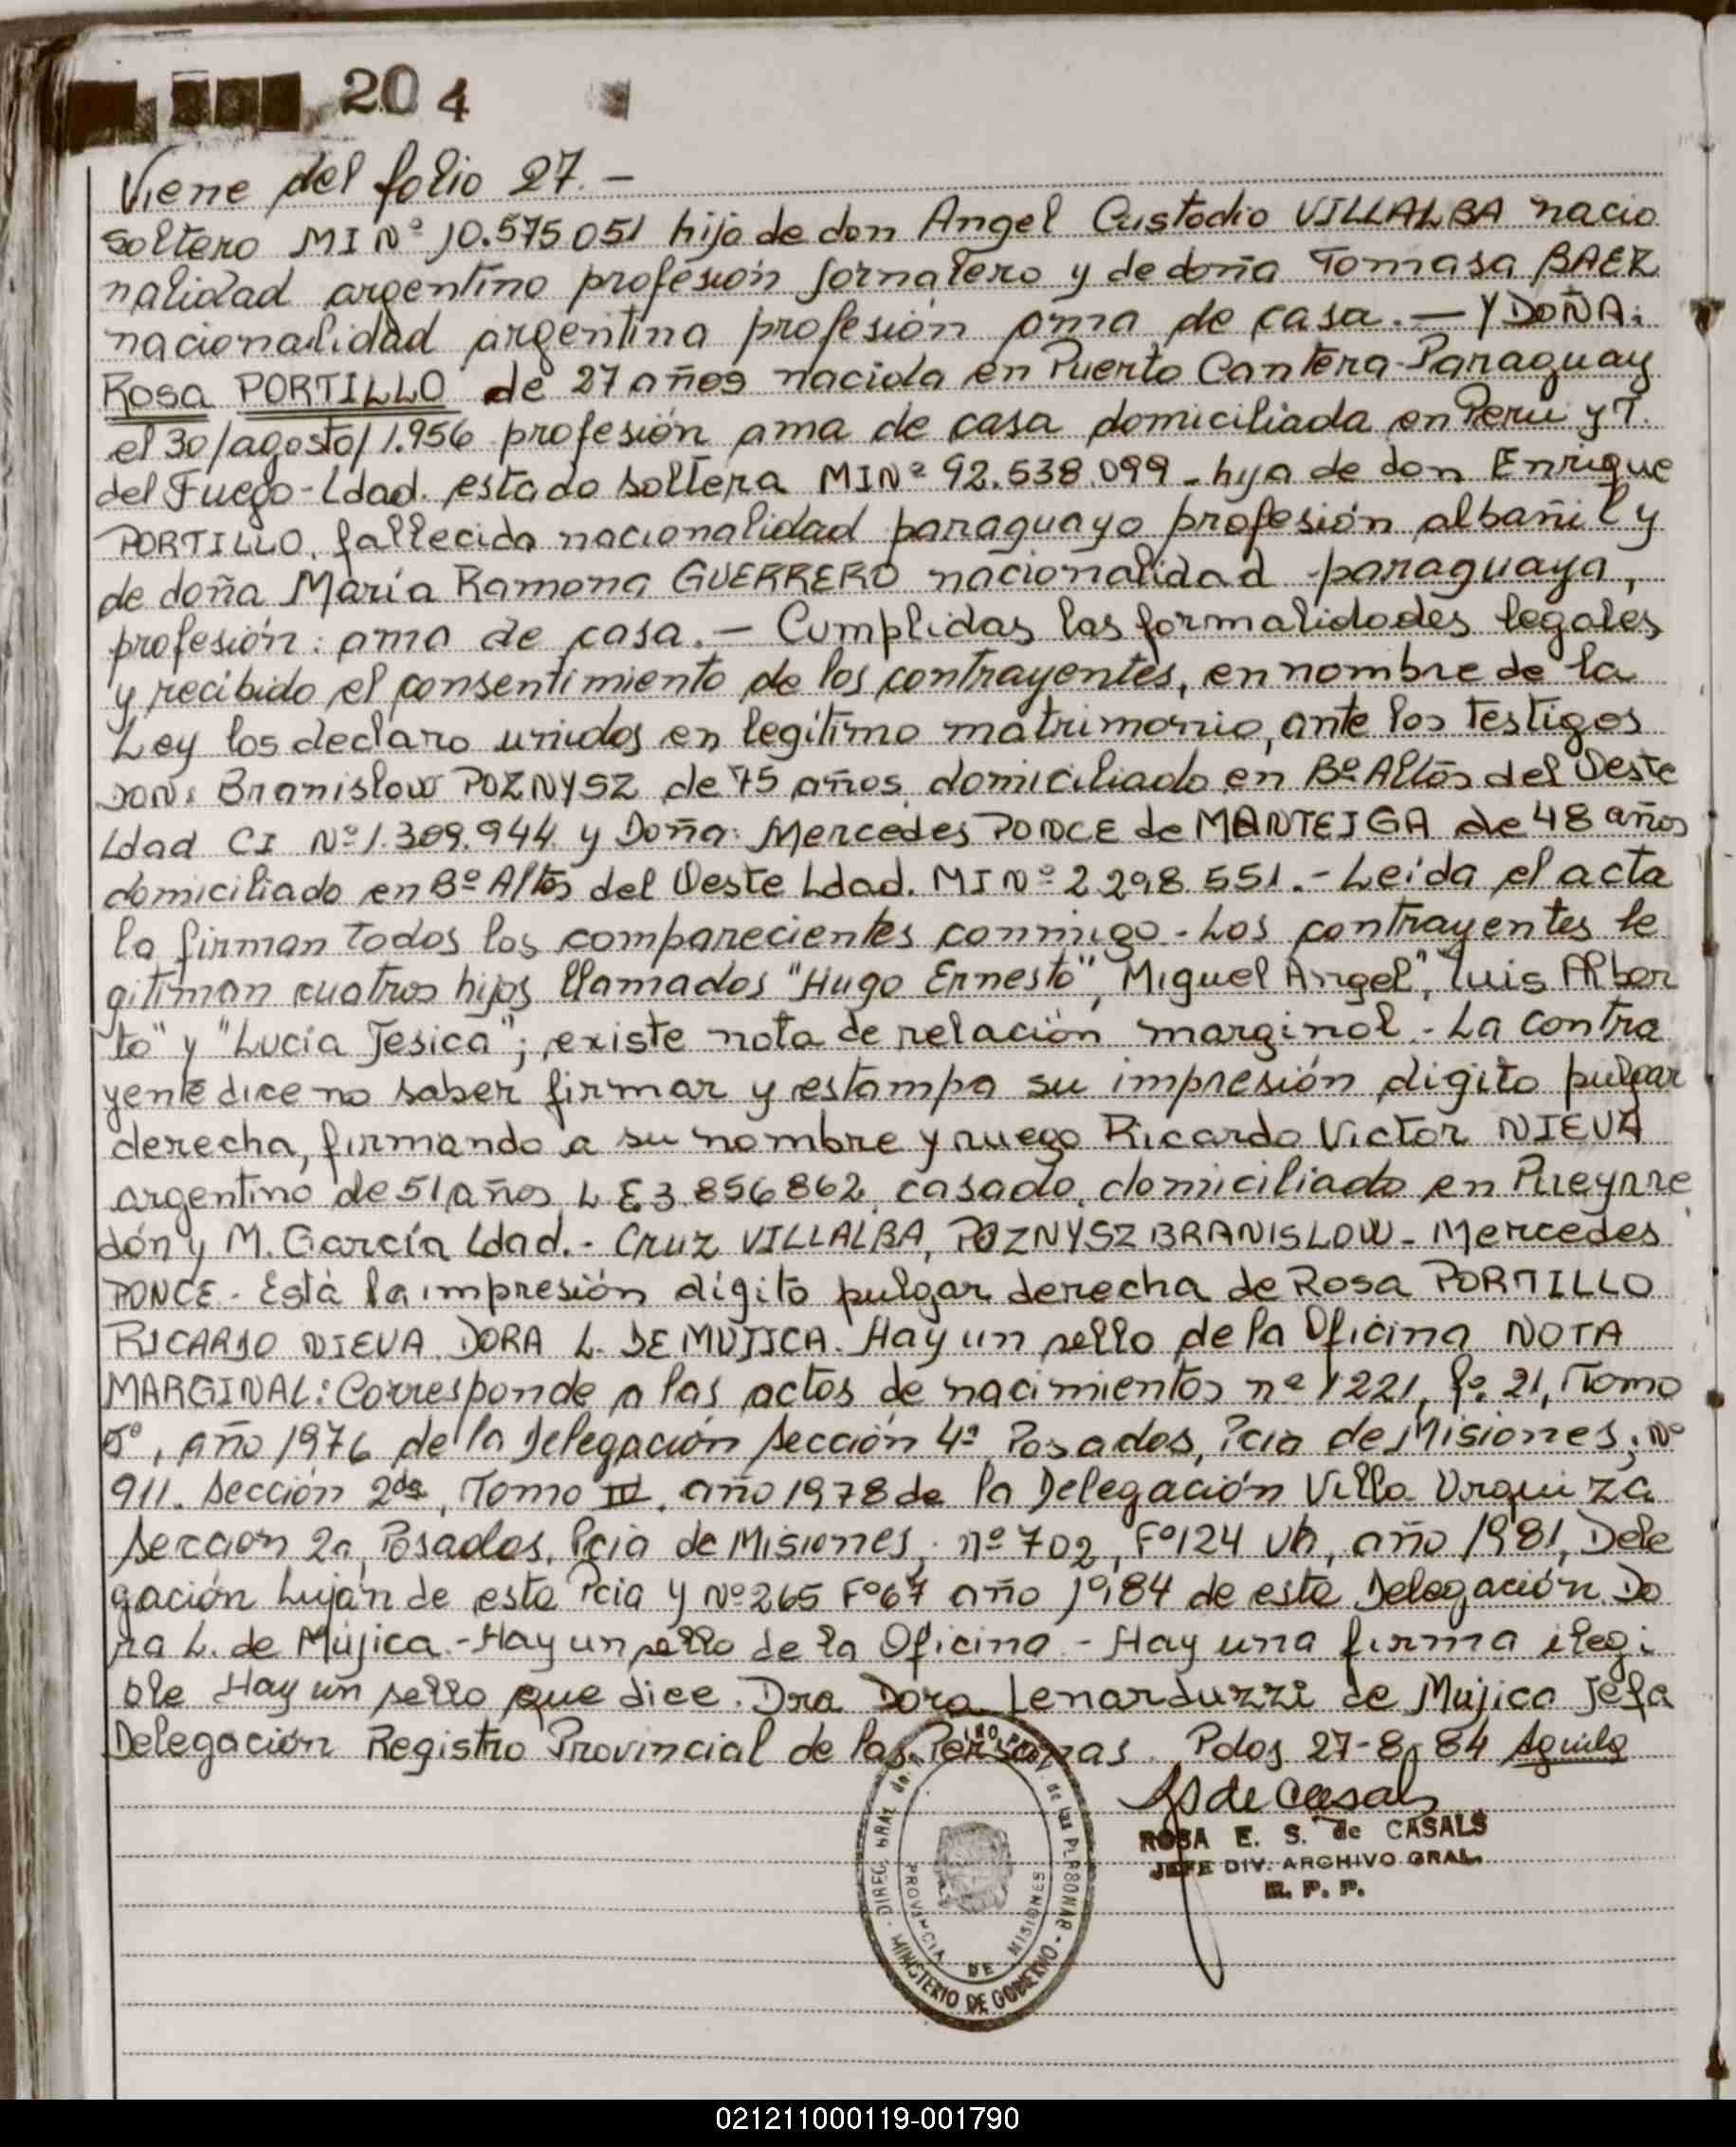 204
Viene del folio 27.-
soltero MI Nº 10.575051 hijo de don Angel Custodio VILLALBA nacio
nalidad argentino profesión Jornalero y de doña Tomasa BAEZ
nacionalidad argentina profesión ama de casa.— Y DOÑA:
Rosa PORTILLO de 27 años nacida en Puerto Cantera-Paraguay
el 30/agosto/1.956 profesión ama de casa domiciliada en Peru y T.
del Fuego-Ldad. estado soltera MI Nº 92.538.099 - hija de don Enrique
PORTILLO, fallecido nacionalidad paraguayo profesión albañil y
de doña María Ramona GUERRERO nacionalidad paraguaya,
profesión: ama de casa.- Cumplidas las formalidades legales
y recibido el consentimiento de los contrayentes, en nombre de la
Ley los declaro unidos en legítimo matrimonio, ante los testigos
DON: Branislow POZNYSZ de 75 años, domiciliado en Bº Altos del Oeste
Ldad CI Nº 1.309.944 y Doña: Mercedes PONCE de MANTEIGA de 48 años
domiciliado en Bº Altos del Oeste Ldad. MI Nº 2 298.551.- Leída el acta
la firman todos los comparecientes conmigo - Los contrayentes le
gitiman cuatros hijos llamados "Hugo Ernesto", Miguel Angel", Luis Alber
to" y "Lucía Jesica"; existe nota de relación marginal - La contra
yente dice no saber firmar y estampa su impresión digito pulgar
derecha, firmando a su nombre y ruego Ricardo Victor NIEVA
argentino de 51 años L E 3.856862, casado, domiciliado en Pueyrre
dón y M. García Ldad.- Cruz VILLALBA, POZNYSZ BRANISLOW - Mercedes
PONCE - Está la impresión dígito pulgar derecha de Rosa PORTILLO
RICARDO NIEVA. DORA L. DE MUJICA. Hay un sello de la Oficina NOTA
MARGINAL: Corresponde a las actas de nacimientos nº 1221, fº 21, Tomo
5º, año 1976 de la Delegación sección 4ª Posadas, Pcia de Misiones; Nº
911. Sección 2da, Tomo III, año 1978 de la Delegación Villa Urquiza
seccion 2a, Posadas, Pcia de Misiones; nº 702, Fº 124 Vta, año 1981, Dele
gación Luján de esta Pcia y Nº 265 Fº 67 año 1984 de esta Delegación. Do
ra L. de Mújica.- Hay un sello de la Oficina - Hay una firma ilegi
ble Hay un sello que dice. Dra Dora Lenarduzzi de Mújica Jefa
Delegación Registro Provincial de las Personas. Pdas 27-8-84 Aguila
de Casals
ROSA E. S. de CASALS
JEFE DIV. ARCHIVO GRAL.
R. P. P.
DIREC. GRAL. de las PERSONAS - MINISTERIO DE GOBIERNO
PROVINCIA DE MISIONES
021211000119-001790